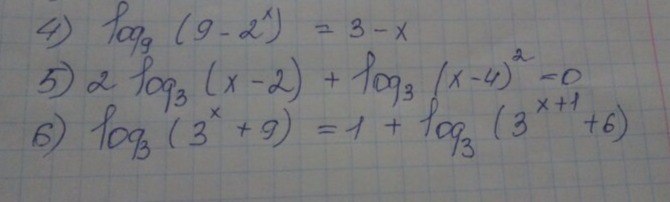 4) log₉ (9 - 2ˣ) = 3 - x
5) 2 log₃ (x - 2) + log₃ (x - 4)² = 0
6) log₃ (3ˣ + 9) = 1 + log₃ (3ˣ⁺¹ + 6)